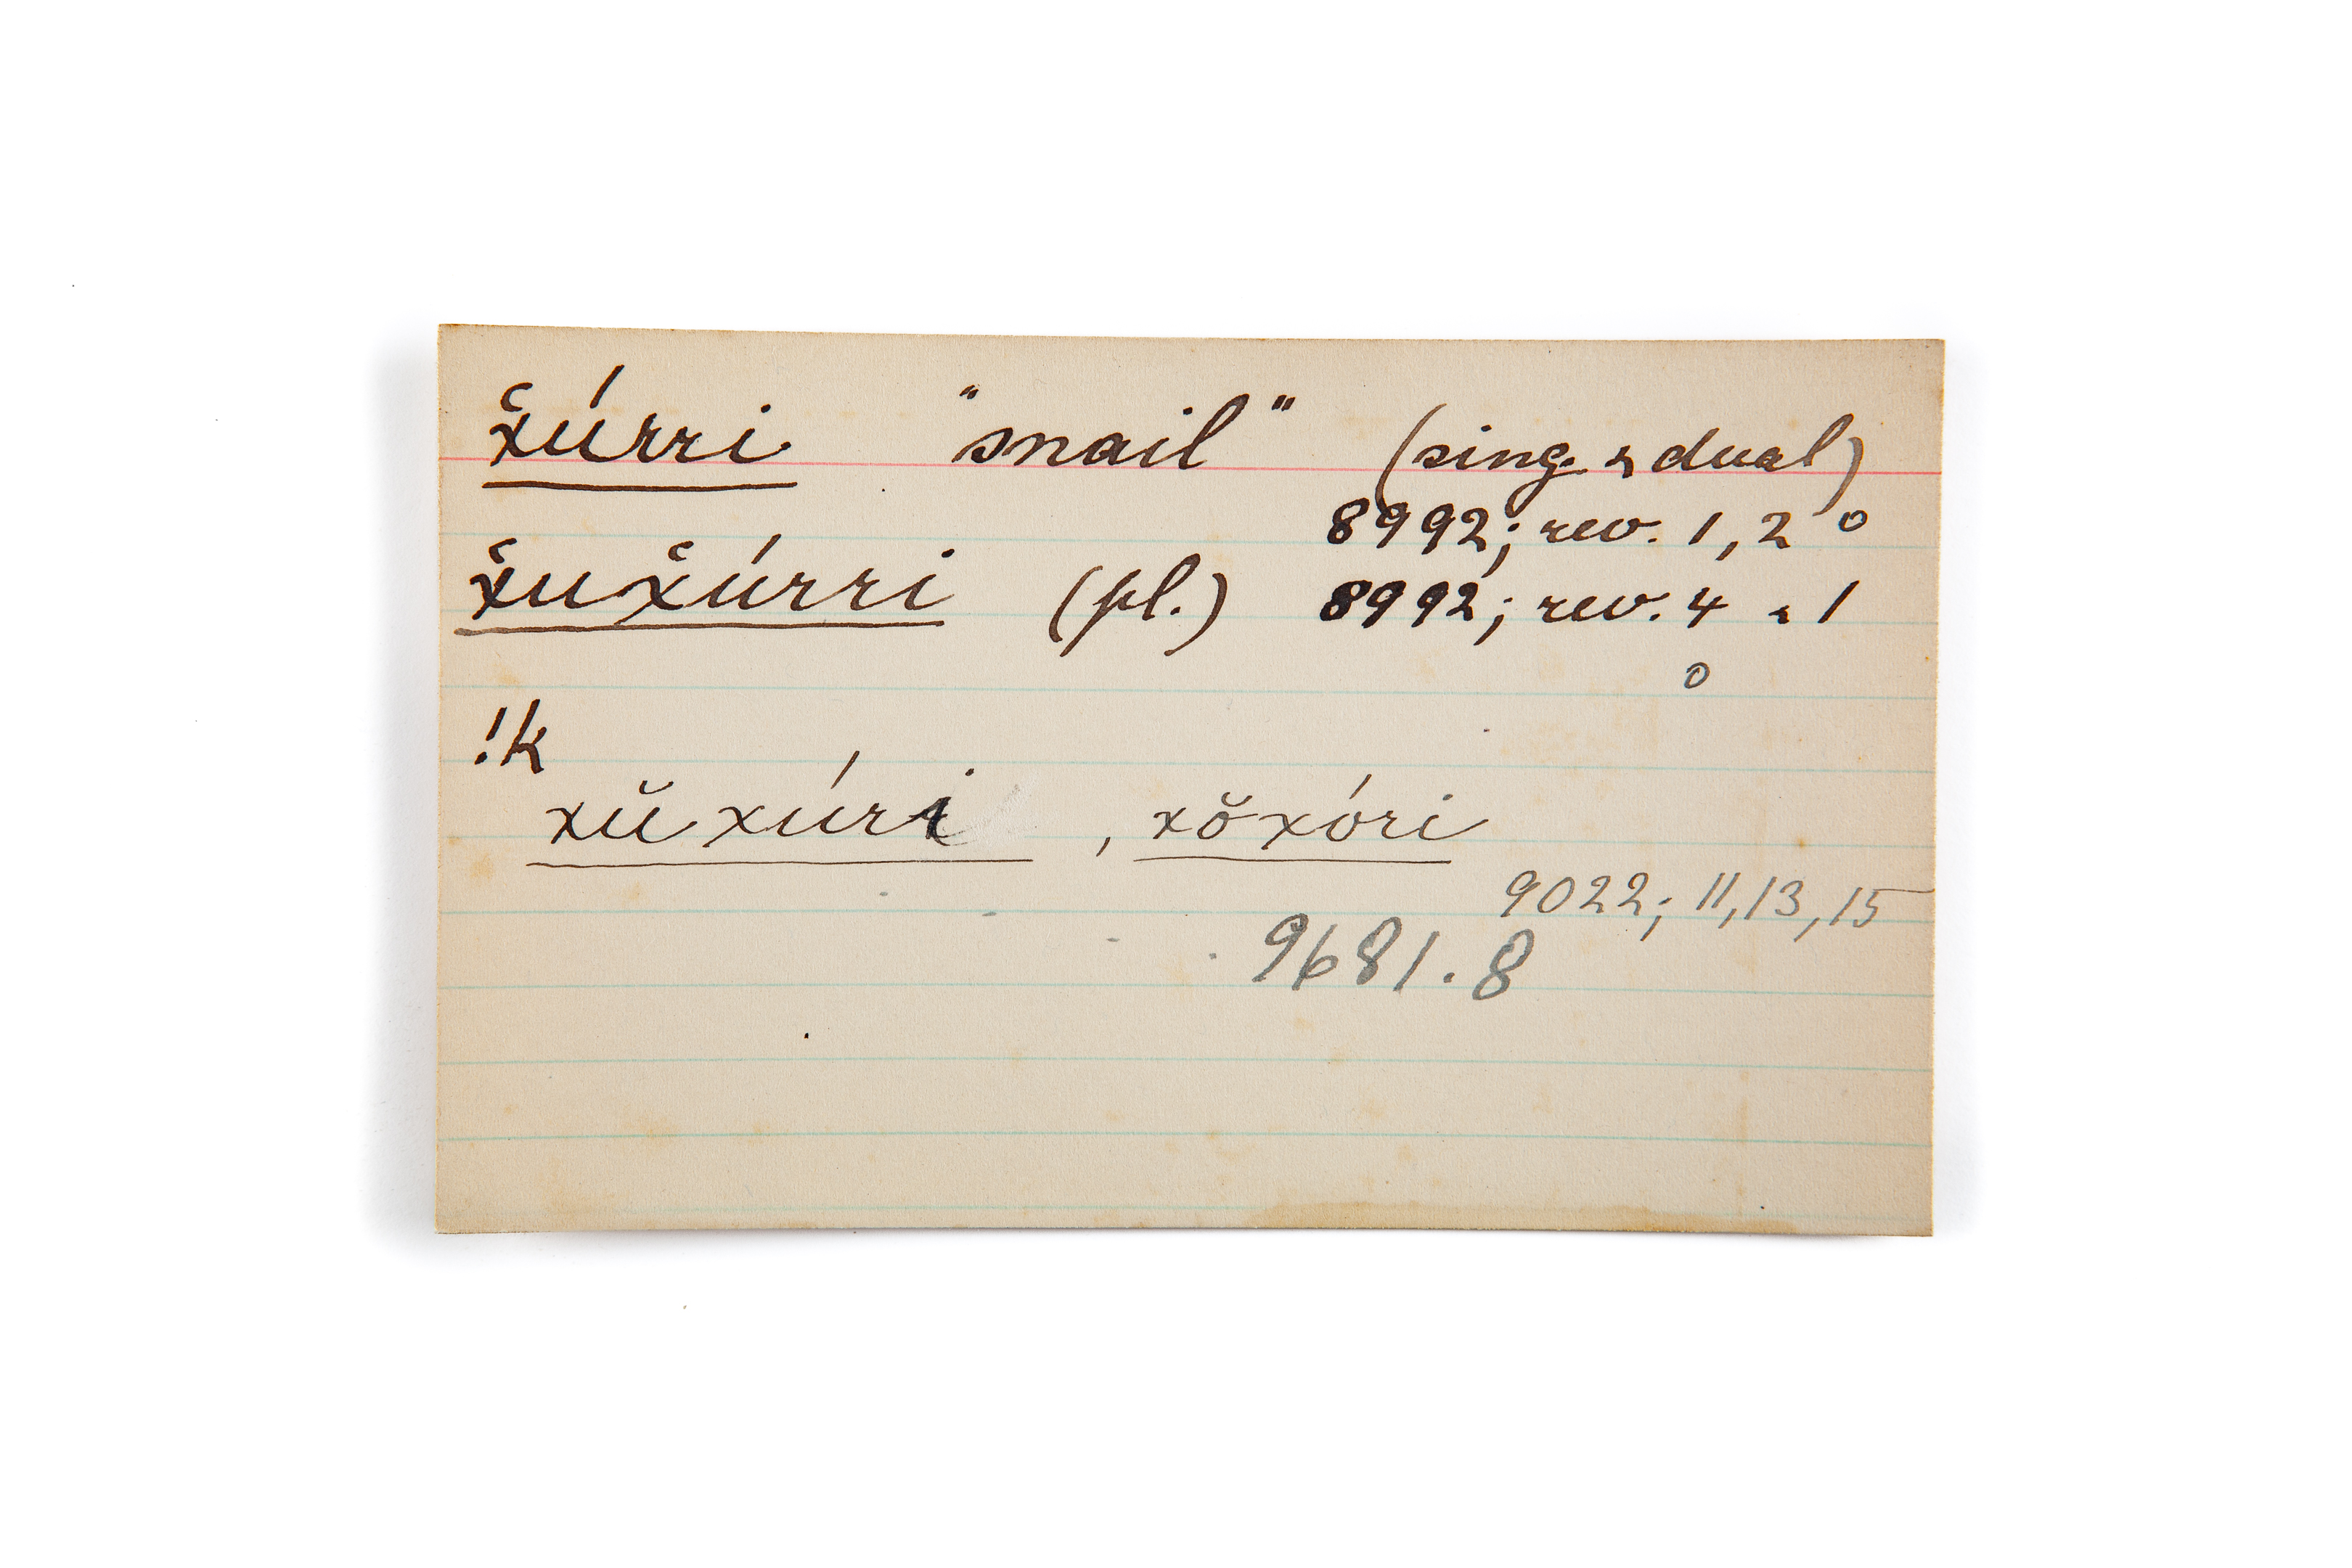 x̆úrri "snail" (sing. & dual)
8992; rev. 1, 2 o
x̆ux̆úrri (pl.) 8992; rev. 4 & 1
o
!k
xŭxúri , xŏxóri
9022; 11, 13, 15
9681.8